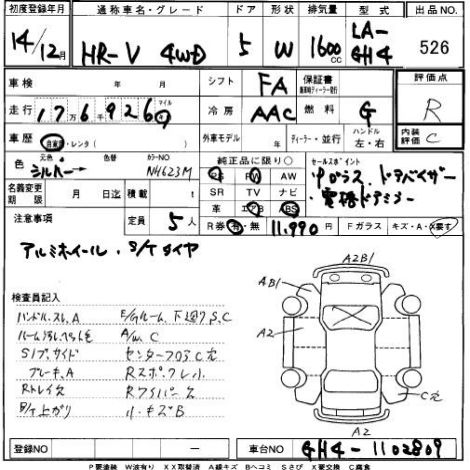 初度登録年月 通称車名・グレード ドア 形状 排気量 型式 出品NO.
14/12月 HR-V 4WD 5 W 1600cc LA-GH4 526
車検 年 月 シフト FA 保証書 評価点
走行 1 7万 6千 9 2 6 マイル 冷房 AAC 燃料 G R
車歴 自家用・レンタ 外車モデル 年 ディーラー・並行 ハンドル 左・右 内装評価 C
色 元色 シルバー 色替 カラーNO NH623M 純正品に限り○ セールスポイント
名義変更期限 月 日迄 積載 t PS PW AW Pガラス、ドアバイザー
SR TV ナビ 電格ドアミラー
注意事項 定員 5人 革 エアB ABS
R券 有・無 11,990円 Fガラス キズ・A・X要す
アルミホイール、S/Tタイヤ
検査員記入
ハンドルスレA E/Gルーム、下廻りS,C
A/W C
Sアプサイド センターフロアC穴
ブレーキ、A
Rトレイ欠 Rワイパー欠
小キズB
A2B1
AB1
A2
C穴
A2
登録NO ー 車台NO GH4-1102809
P要塗装 W波有り XX取替済 A線キズ Bヘコミ Sさび X要交換 C腐食